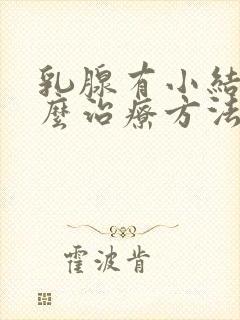 乳腺有小結
麼治療方法
霍波肯